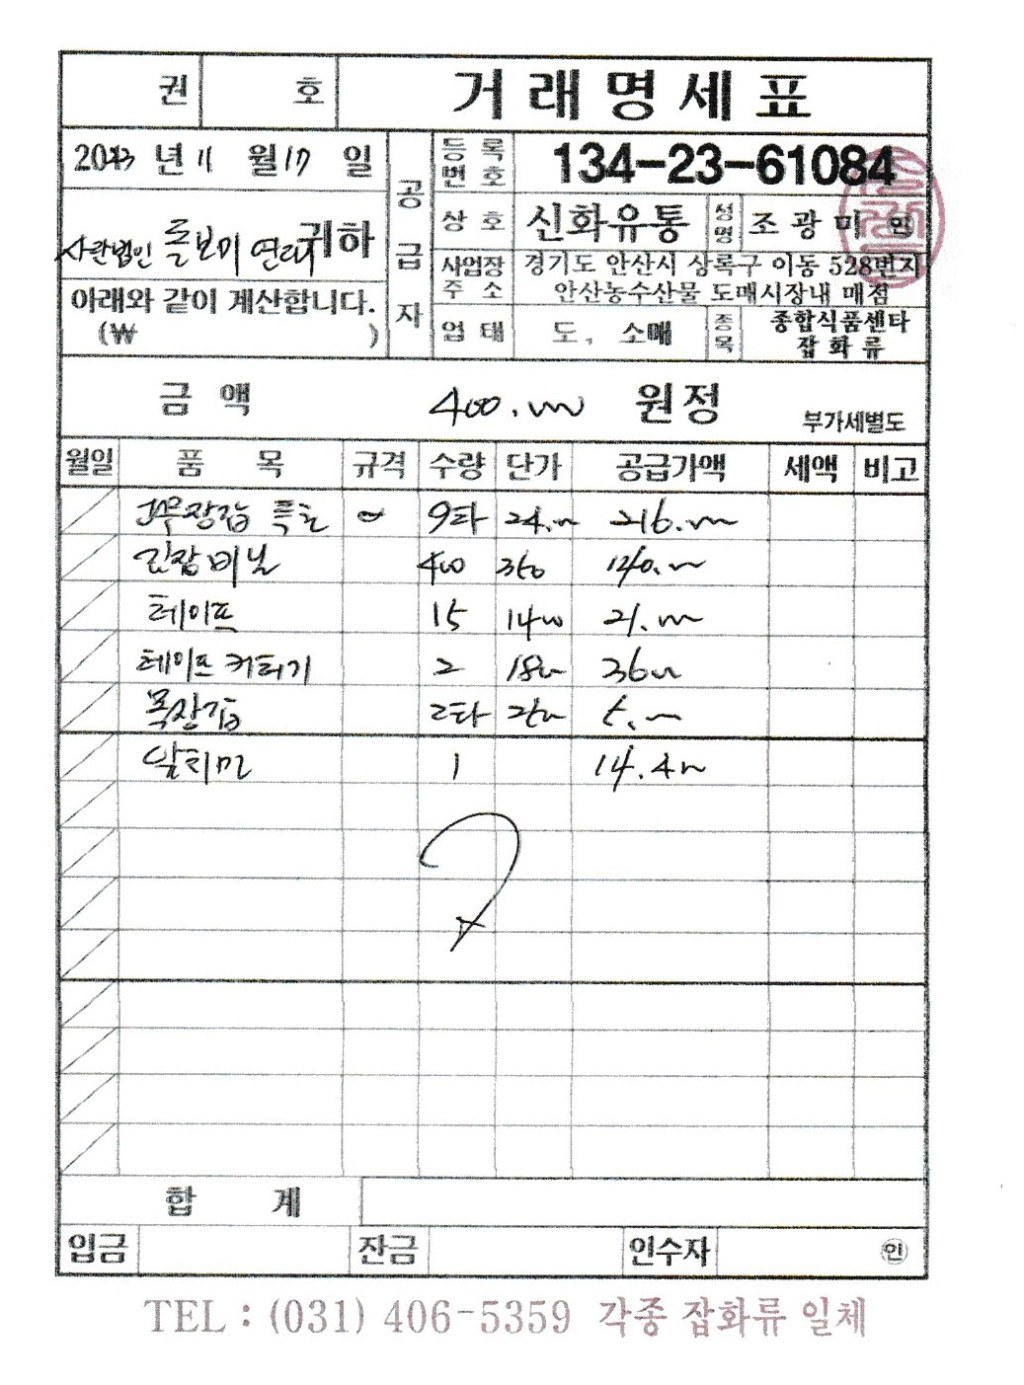 권 호 거래명세표
2013 년 11 월 17 일
공급자
등록번호 134-23-61084
상호 신화유통 성명 조광미 인
사단법인 돌보미 연대 귀하
사업장주소 경기도 안산시 상록구 이동 528번지
안산농수산물 도매시장내 매점
아래와 같이 계산합니다.
(₩ )
업태 도, 소매 종목 종합식품센타
잡화류
금액 400.000 원정 부가세별도
월일 품목 규격 수량 단가 공급가액 세액 비고
고무장갑 특 9타 24.000 216.000
김장비닐 400 350 140.000
테이프 15 1400 21.000
테이프 커터기 2 1800 3600
목장갑 2타 2500 5.000
1 14.400
합계
입금 잔금 인수자 인
TEL : (031) 406-5359 각종 잡화류 일체